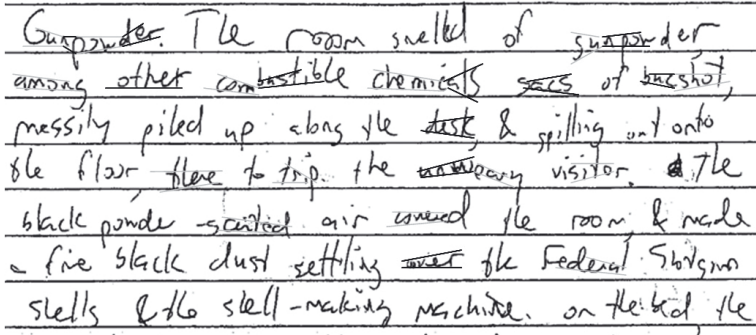 Gunpowder. The room smelled of gunpowder
among other combustible chemicals sacs of bucshot,
messily piled up along the desk, & spilling out onto
the floor, there to trip. the unweary visitor. The
black powde -scented air covered the room, & made
a fine black dust settling over the Federal Shotgun
shells & the shell-making machine. on the bed the